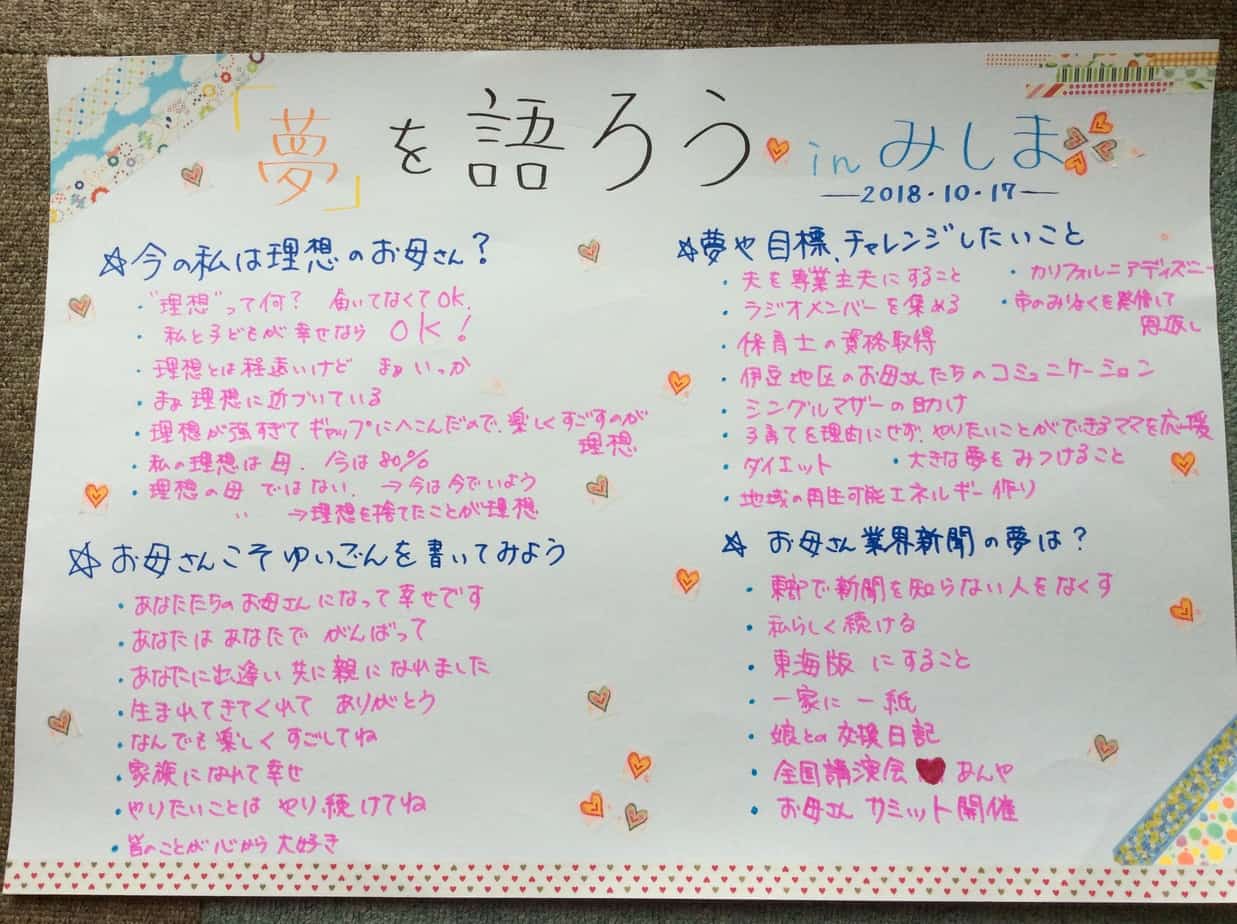 「夢」を語ろう in みしま
2018・10・17
☆今の私は理想のお母さん?
・"理想"って何? 届いてなくてOK.
・私と子どもが幸せなら OK!
・理想とは程遠いけど まぁいっか
・まぁ理想に近づいている
・理想が強すぎてギャップにへこんだので、楽しくすごすのが
理想
・私の理想は母. 今は80%
・理想の母 ではない. →今は今でいよう
〃 →理想を捨てたことが理想
☆お母さんこそゆいごんを書いてみよう
・あなたたちのお母さんになって幸せです
・あなたは あなたで がんばって
・あなたに出逢い 共に親になれました
・生まれてきてくれて ありがとう
・なんでも楽しく すごしてね
・家族になれて幸せ
・やりたいことは やり続けてね
・皆のことが心から 大好き
☆夢や目標、チャレンジしたいこと
・夫を専業主夫にすること
・カリフォルニアディズニー
・ラジオメンバーを集める
・市のみりょくを発信して
恩返し
・保育士の資格取得
・伊豆地区のお母さんたちのコミュニケーション
・シングルマザーの助け
・子育てを理由にせず、やりたいことができるママを応援
・ダイエット
・大きな夢をみつけること
・地域の再生可能エネルギー作り
☆ お母さん業界新聞の夢は?
・東部で新聞を知らない人をなくす
・私らしく続ける
・東海版 にすること
・一家に 一紙
・娘との交換日記
・全国講演会 あんや
・お母さん サミット開催